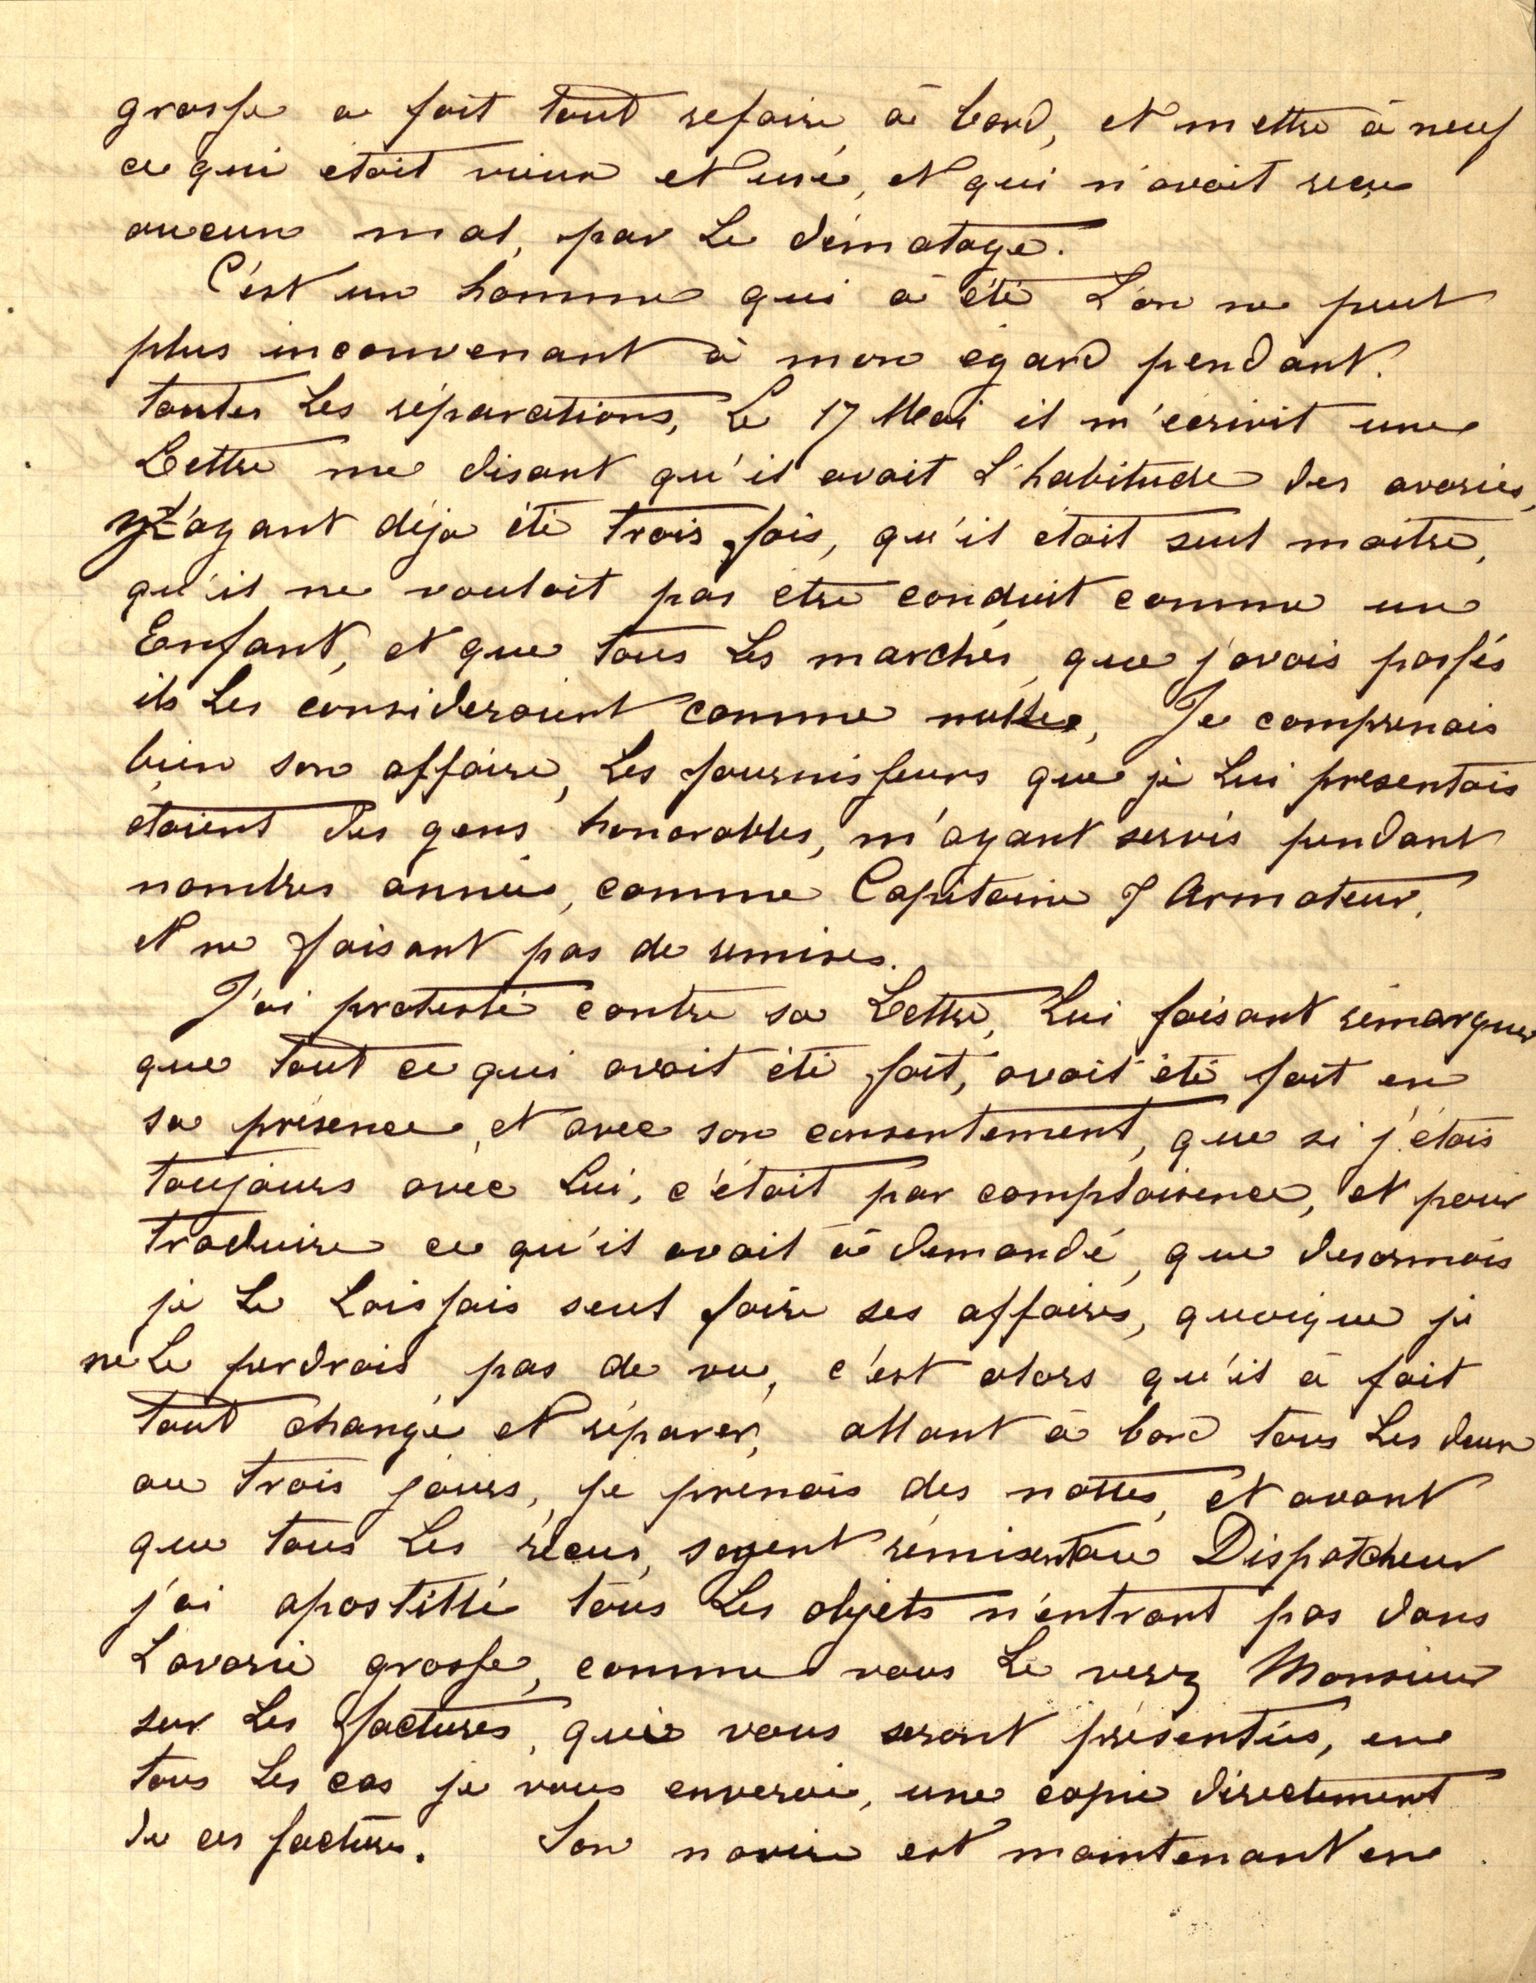 grosse a fait tout refaire à bord, et mettre à neuf
ce qui était vieux et usé, et qui n'avait reçu
aucun mal, par Le démotage.
C'est un homme qui à été L'on ne peut
plus inconvenant à mon égard pendant.
toutes Les réparations, Le 17 Mai il m'écrivit une
Lettre me disant qu'il avait L'habitude des avaries,
ayant déja été trois fois, qu'il était seul maitre,
qu'il ne voulait pas être conduit comme un
Enfant, et que tous Les marchés, que j'avais passés
ils Les considéraient comme nulle, Je comprenais
bien son affaire, Les fournisseurs que je Lui presentais
étaient des gens honorables, m'ayant servis pendant
nombres année, comme Capitaine & Armateur,
et ne faisant pas de remises.
J'ai protesté contre sa Lettre, Lui faisant rémarquer
que tout ce qui avait été fait, avait été fait en
sa présence, et avec son consentement, que si j'étais
toujours avéc Lui, c'était par complaisence, et pour
traduire ce qu'il avait à demandé, que desormais
je Le Laissais seul faire ses affaires, quoique je
ne Le perdrais pas de vu, c'est alors qu'il à fait
tout changé et réparer, allant à bord tous Les deux
ou trois jours, je prenais des nottes, et avant
que tous Les récus, soyent rémisent au Dispatcheur
j'ai apostillé tous Les objets n'entrant pas dans
L'avarie grosse, comme vous Le verez Monsieur
sur Les factures, qui vous seront présentées, en
tous Les cas je vous enverai, une copie directement
de ces factures. Son navire est maintenant en